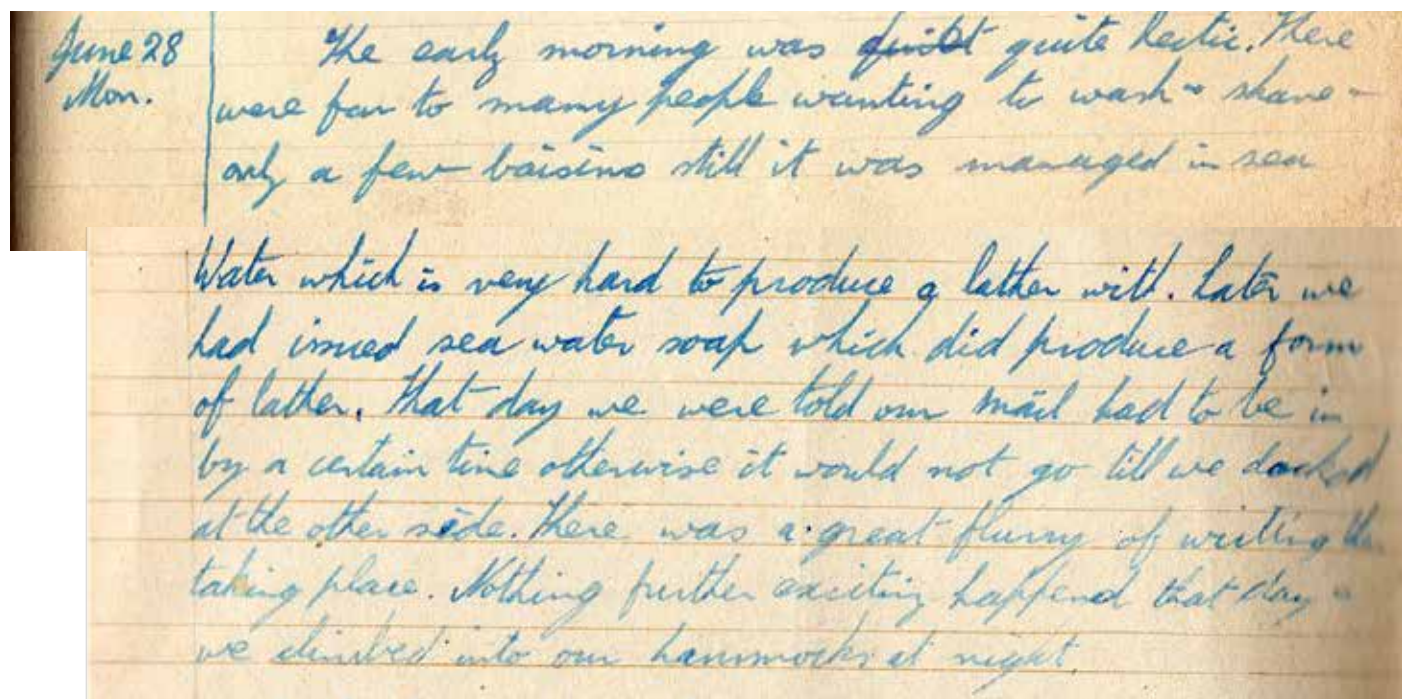 June 28 The early morning was quite hectic. There
Mon. were far to many people wanting to wash + shave +
only a few baisins still it was managed in sea
Water which is very hard to produce a lather with. Later we
had issued sea water soap which did produce a form
of lather. That day we were told our mail had to be in
by a certain time otherwise it would not go till we docked
at the other side. There was a great flurry of writing
taking place. Nothing further exciting happend that day +
we climbed into our hammocks at night